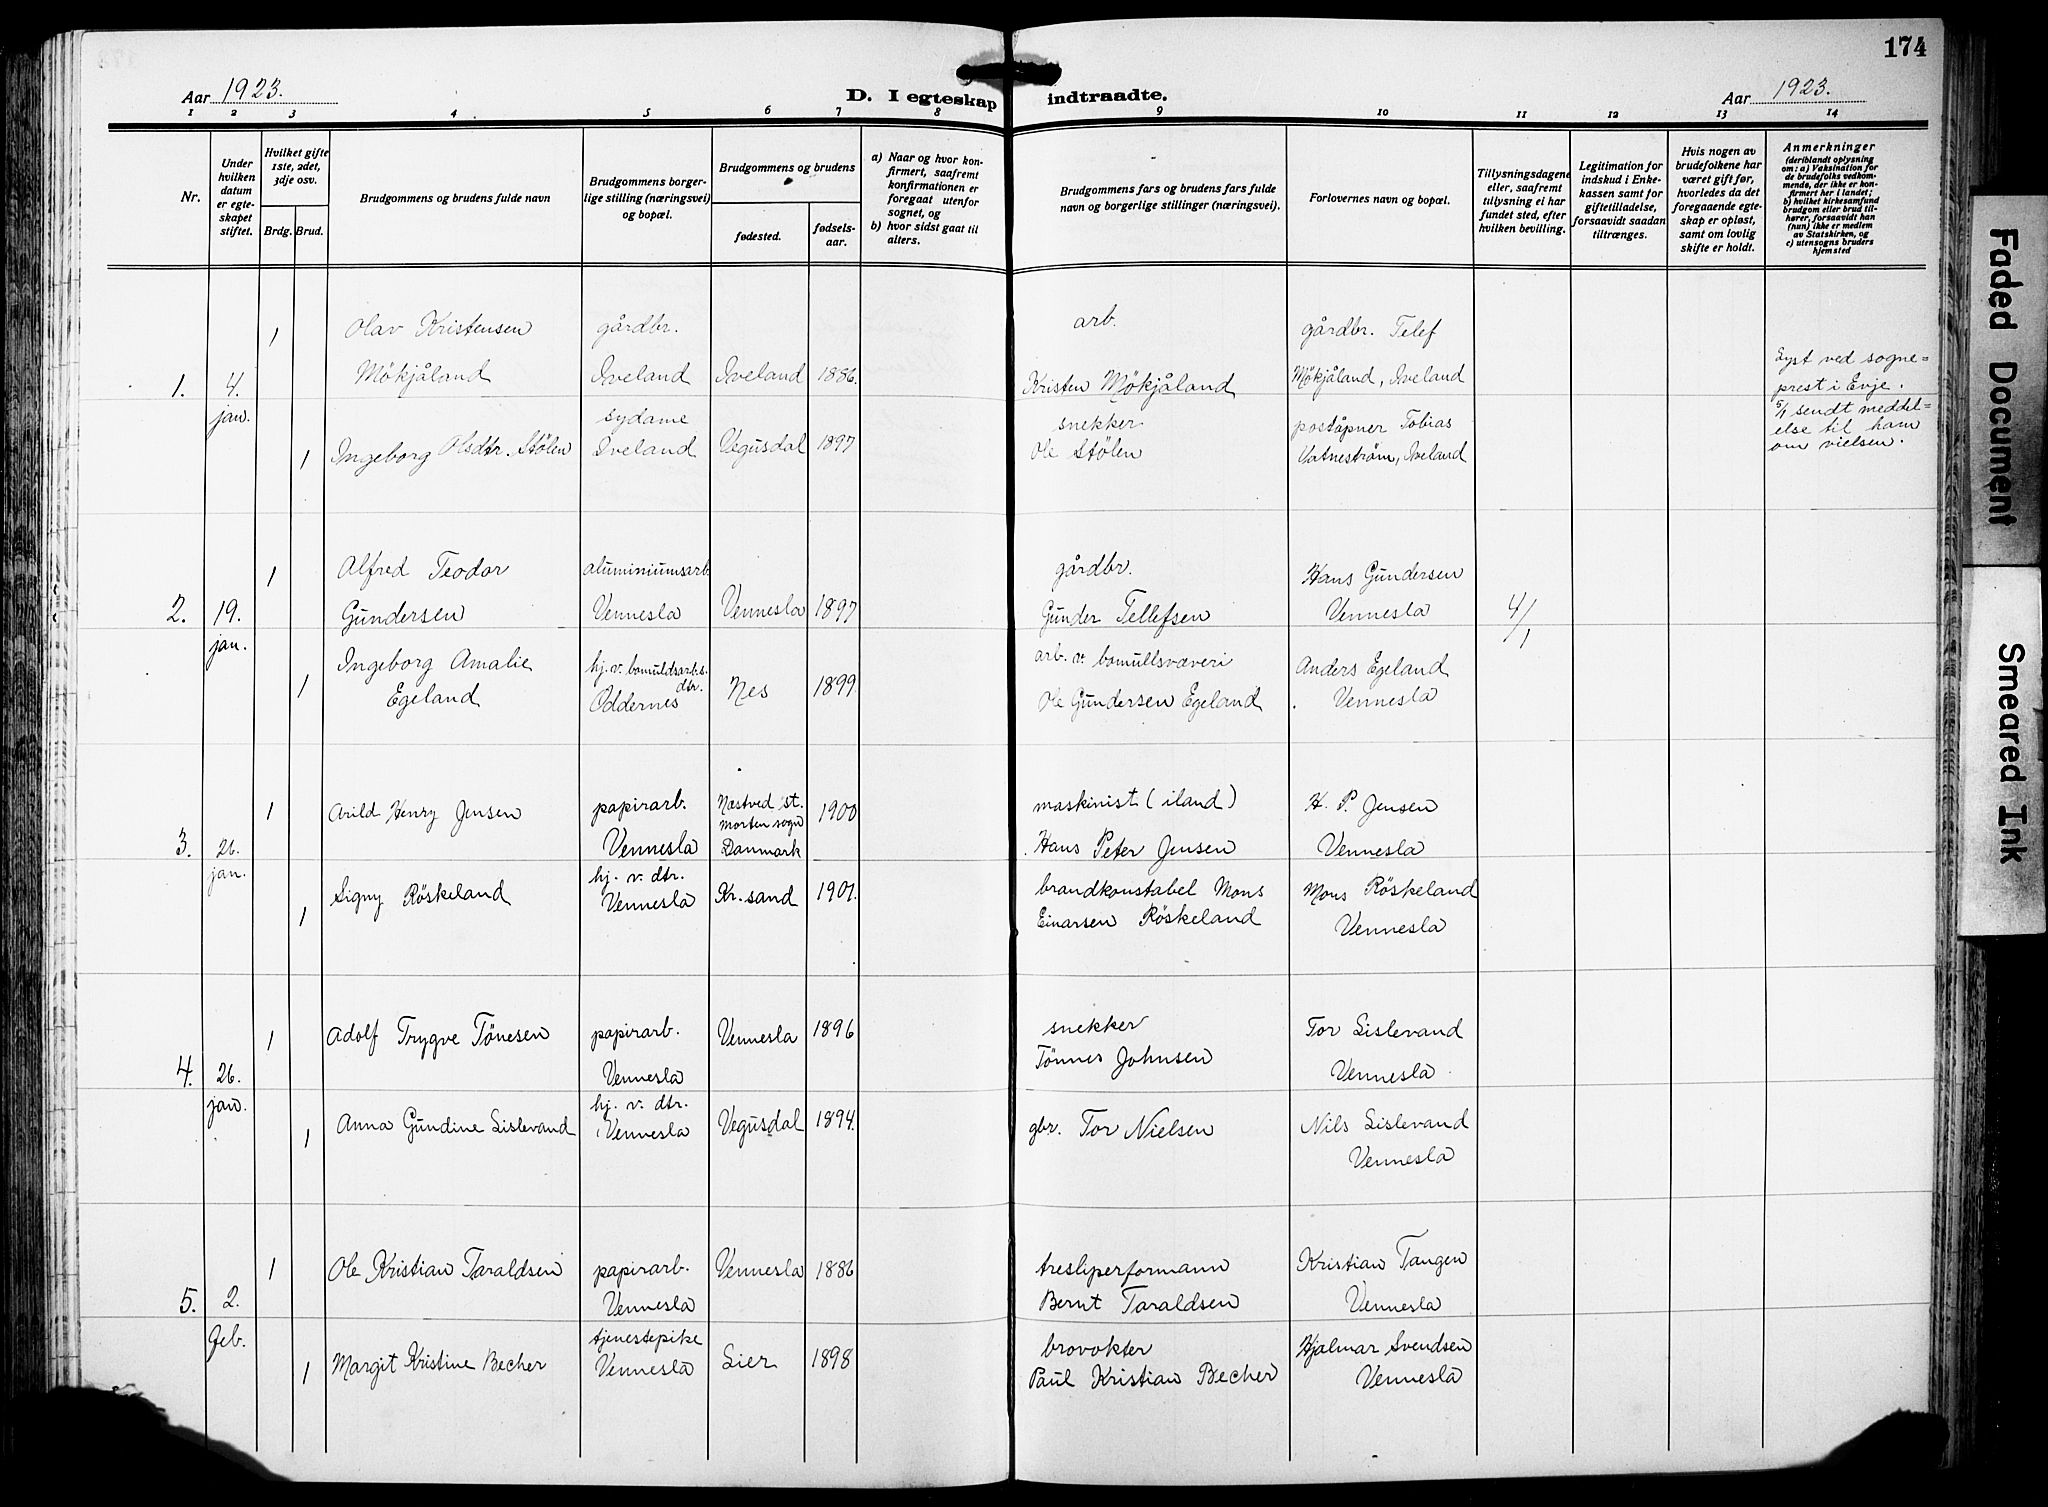 174
Aar 1923.
D. I egteskap indtraadte.
Aar 1923.
1 2 3 4 5 6 7 8 9 10 11 12 13 14
Nr.
Under
hvilken
datum
er egte-
skapet
stiftet.
Hvilket gifte
1ste, 2det,
3dje osv.
Brdg. Brud.
Brudgommens og brudens fulde navn
Brudgommens borger-
lige stilling (næringsvei)
og bopæl.
Brudgommens og brudens
fødested.
fødsels-
aar.
a) Naar og hvor kon-
firmert, saafremt
konfirmationen er
foregaat utenfor
sognet, og
b) hvor sidst gaat til
alters.
Brudgommens fars og brudens fars fulde
navn og borgerlige stillinger (næringsvei).
Forlovernes navn og bopæl.
Tillysningsdagene
eller, saafremt
tillysning ei har
fundet sted, efter
hvilken bevilling.
Legitimation for
indskud i Enke-
kassen samt for
giftetilladelse,
forsaavidt saadan
tiltrænges.
Hvis nogen av
brudefolkene har
været gift før,
hvorledes da det
foregaaende egte-
skap er opløst,
samt om lovlig
skifte er holdt.
Anmerkninger
(deriblandt oplysning
om: a) Vaksination for
de brudefolks vedkom-
mende, der ikke er kon-
firmert her i landet;
b) hvilket kirkesamfund
brudgom eller brud til-
hører, forsaavidt han
(hun) ikke er medlem
av Statskirken, og
c) utensogns bruders
hjemsted
1. 4. jan.
1 Olav Kristensen
Mökjåland
gårdbr.
Iveland
Iveland 1886.
arb.
Kristen Mökjåland
gårdbr. Telef
Mökjåland, Iveland
Lyst ved sogne-
prest i Evje.
5/1 sendt meddel-
else til ham
om vielsen.
1 Ingeborg Olsdtr. Stölen
sydame
Iveland
Vegusdal 1897
snekker
Ole Stölen
poståpner Tobias
Vatneström, Iveland
2. 19. jan.
1 Alfred Teodor
Gundersen
aluminiumsarb.
Vennesla
Vennesla 1897
gårdbr.
Gunder Tellefsen
Hans Gundersen
Vennesla
4/1
1 Ingeborg Amalie
Egeland
hj. v. bomuldsarb.s.
dtr.
Oddernes
Nes 1899.
arb. v. bomullsvæveri
Ole Gundersen Egeland
Anders Egeland
Vennesla
3. 26. jan.
1 Arild Henry Jensen
papirarb.
Vennesla
Næstved st.
Morten sogn
Danmark
1900
maskinist (iland)
Hans Peter Jensen
H. P. Jensen
Vennesla
1 Signy Röskeland
hj. v. dtr.
Vennesla
Kr.sand 1901.
brandkonstabel Mons
Einarsen Röskeland
Mons Röskeland
Vennesla
4. 26. jan.
1 Adolf Trygve Tönesen
papirarb.
Vennesla
Vennesla 1896
snekker
Tönnes Johnsen
Tor Lislevand
Vennesla
1 Anna Gundine Lislevand
hj. v. dtr.
Vennesla
Vegusdal 1894.
gbr. Tor Nielsen
Nils Lislevand
Vennesla
5. 2. feb.
1 Ole Kristian Taraldsen
papirarb.
Vennesla
Vennesla 1886
tresliperformann
Bernt Taraldsen
Kristian Tangen
Vennesla
1 Margit Kristine Becher
tjenestepike
Vennesla
Lier 1898
brovokter
Paul Kristian Becher
Hjalmar Svendsen
Vennesla
Faded Document
Smeared Ink